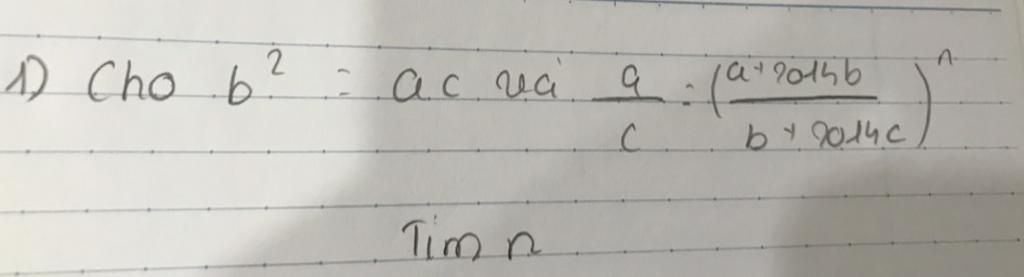 1) Cho b² = ac và a/c = (a+2014b / b+2014c)ⁿ
Tìm n